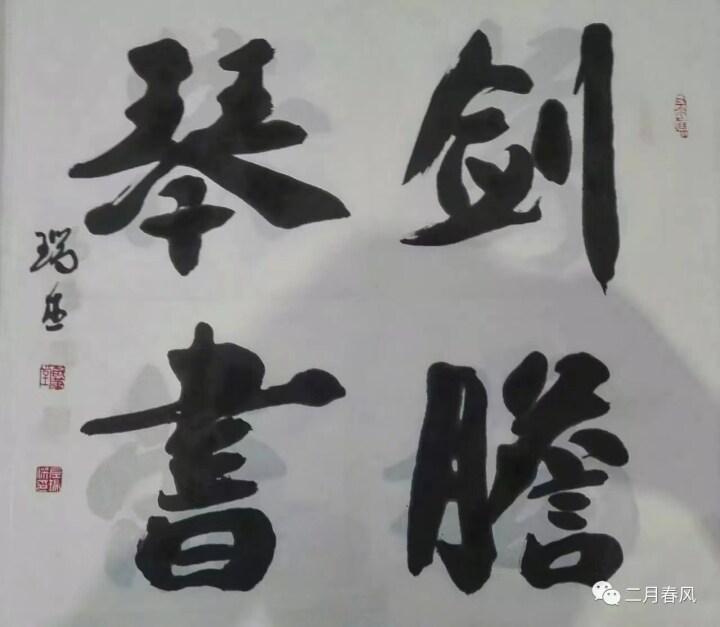 剑膽
琴書
瑞
二月春风